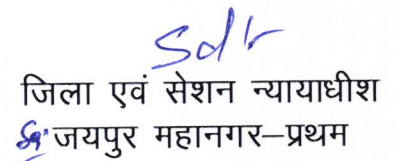 Sd/-
जिला एवं सेशन न्यायाधीश
जयपुर महानगर–प्रथम